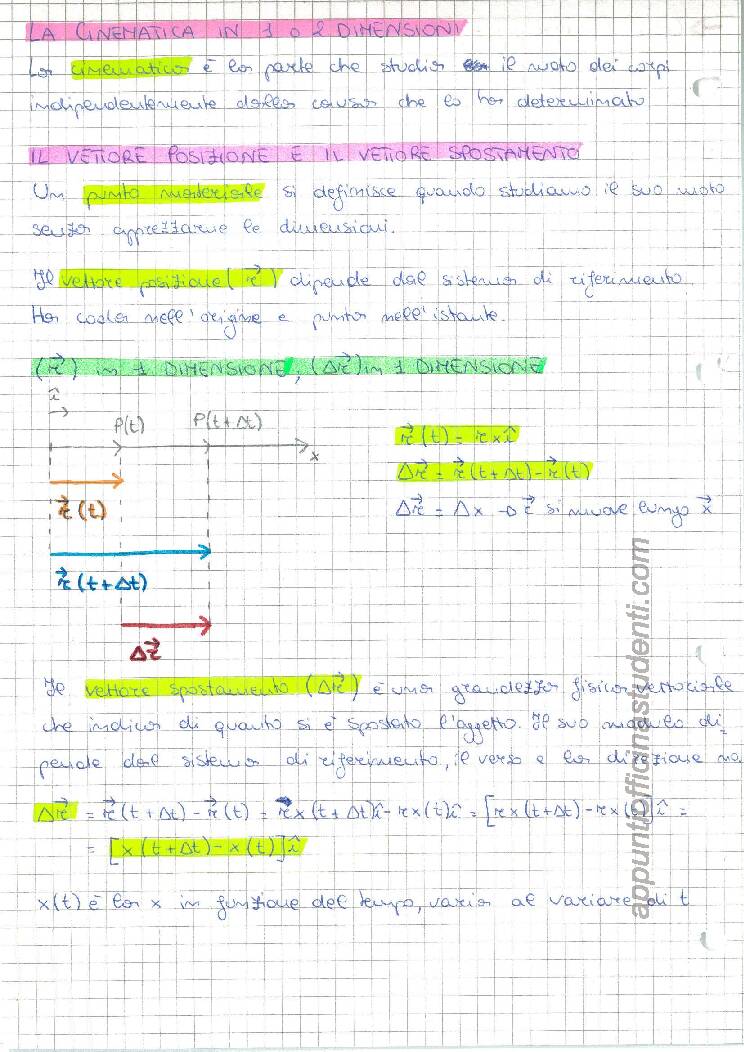 LA CINEMATICA IN 1 O 2 DIMENSIONI
La cinematica è la parte che studia il moto dei corpi
indipendentemente dalla causa che lo ha determinato
IL VETTORE POSIZIONE E IL VETTORE SPOSTAMENTO
Un punto materiale si definisce quando studiamo il suo moto
senza apprezzarne le dimensioni.
Il vettore posizione (r⃗) dipende dal sistema di riferimento.
Ha coda nell'origine e punta nell'istante.
(r⃗) in 1 DIMENSIONE, (Δr⃗) in 1 DIMENSIONE
î
P(t) P(t+Δt)
x
r⃗(t) = rxî
Δr⃗ = r⃗(t+Δt)-r⃗(t)
Δr⃗ = Δx → r⃗ si muove lungo x⃗
r⃗(t)
r⃗(t+Δt)
Δr⃗
Il vettore spostamento (Δr⃗) è una grandezza fisica vettoriale
che indica di quanto si è spostato l'oggetto. Il suo modulo di-
pende dal sistema di riferimento, il verso e la direzione no.
Δr⃗ = r⃗(t+Δt)-r⃗(t) = rx(t+Δt)î-rx(t)î = [rx(t+Δt)-rx(t)]î =
= [x(t+Δt)-x(t)]î
x(t) è la x in funzione del tempo, varia al variare di t
appuntiofficinastudenti.com